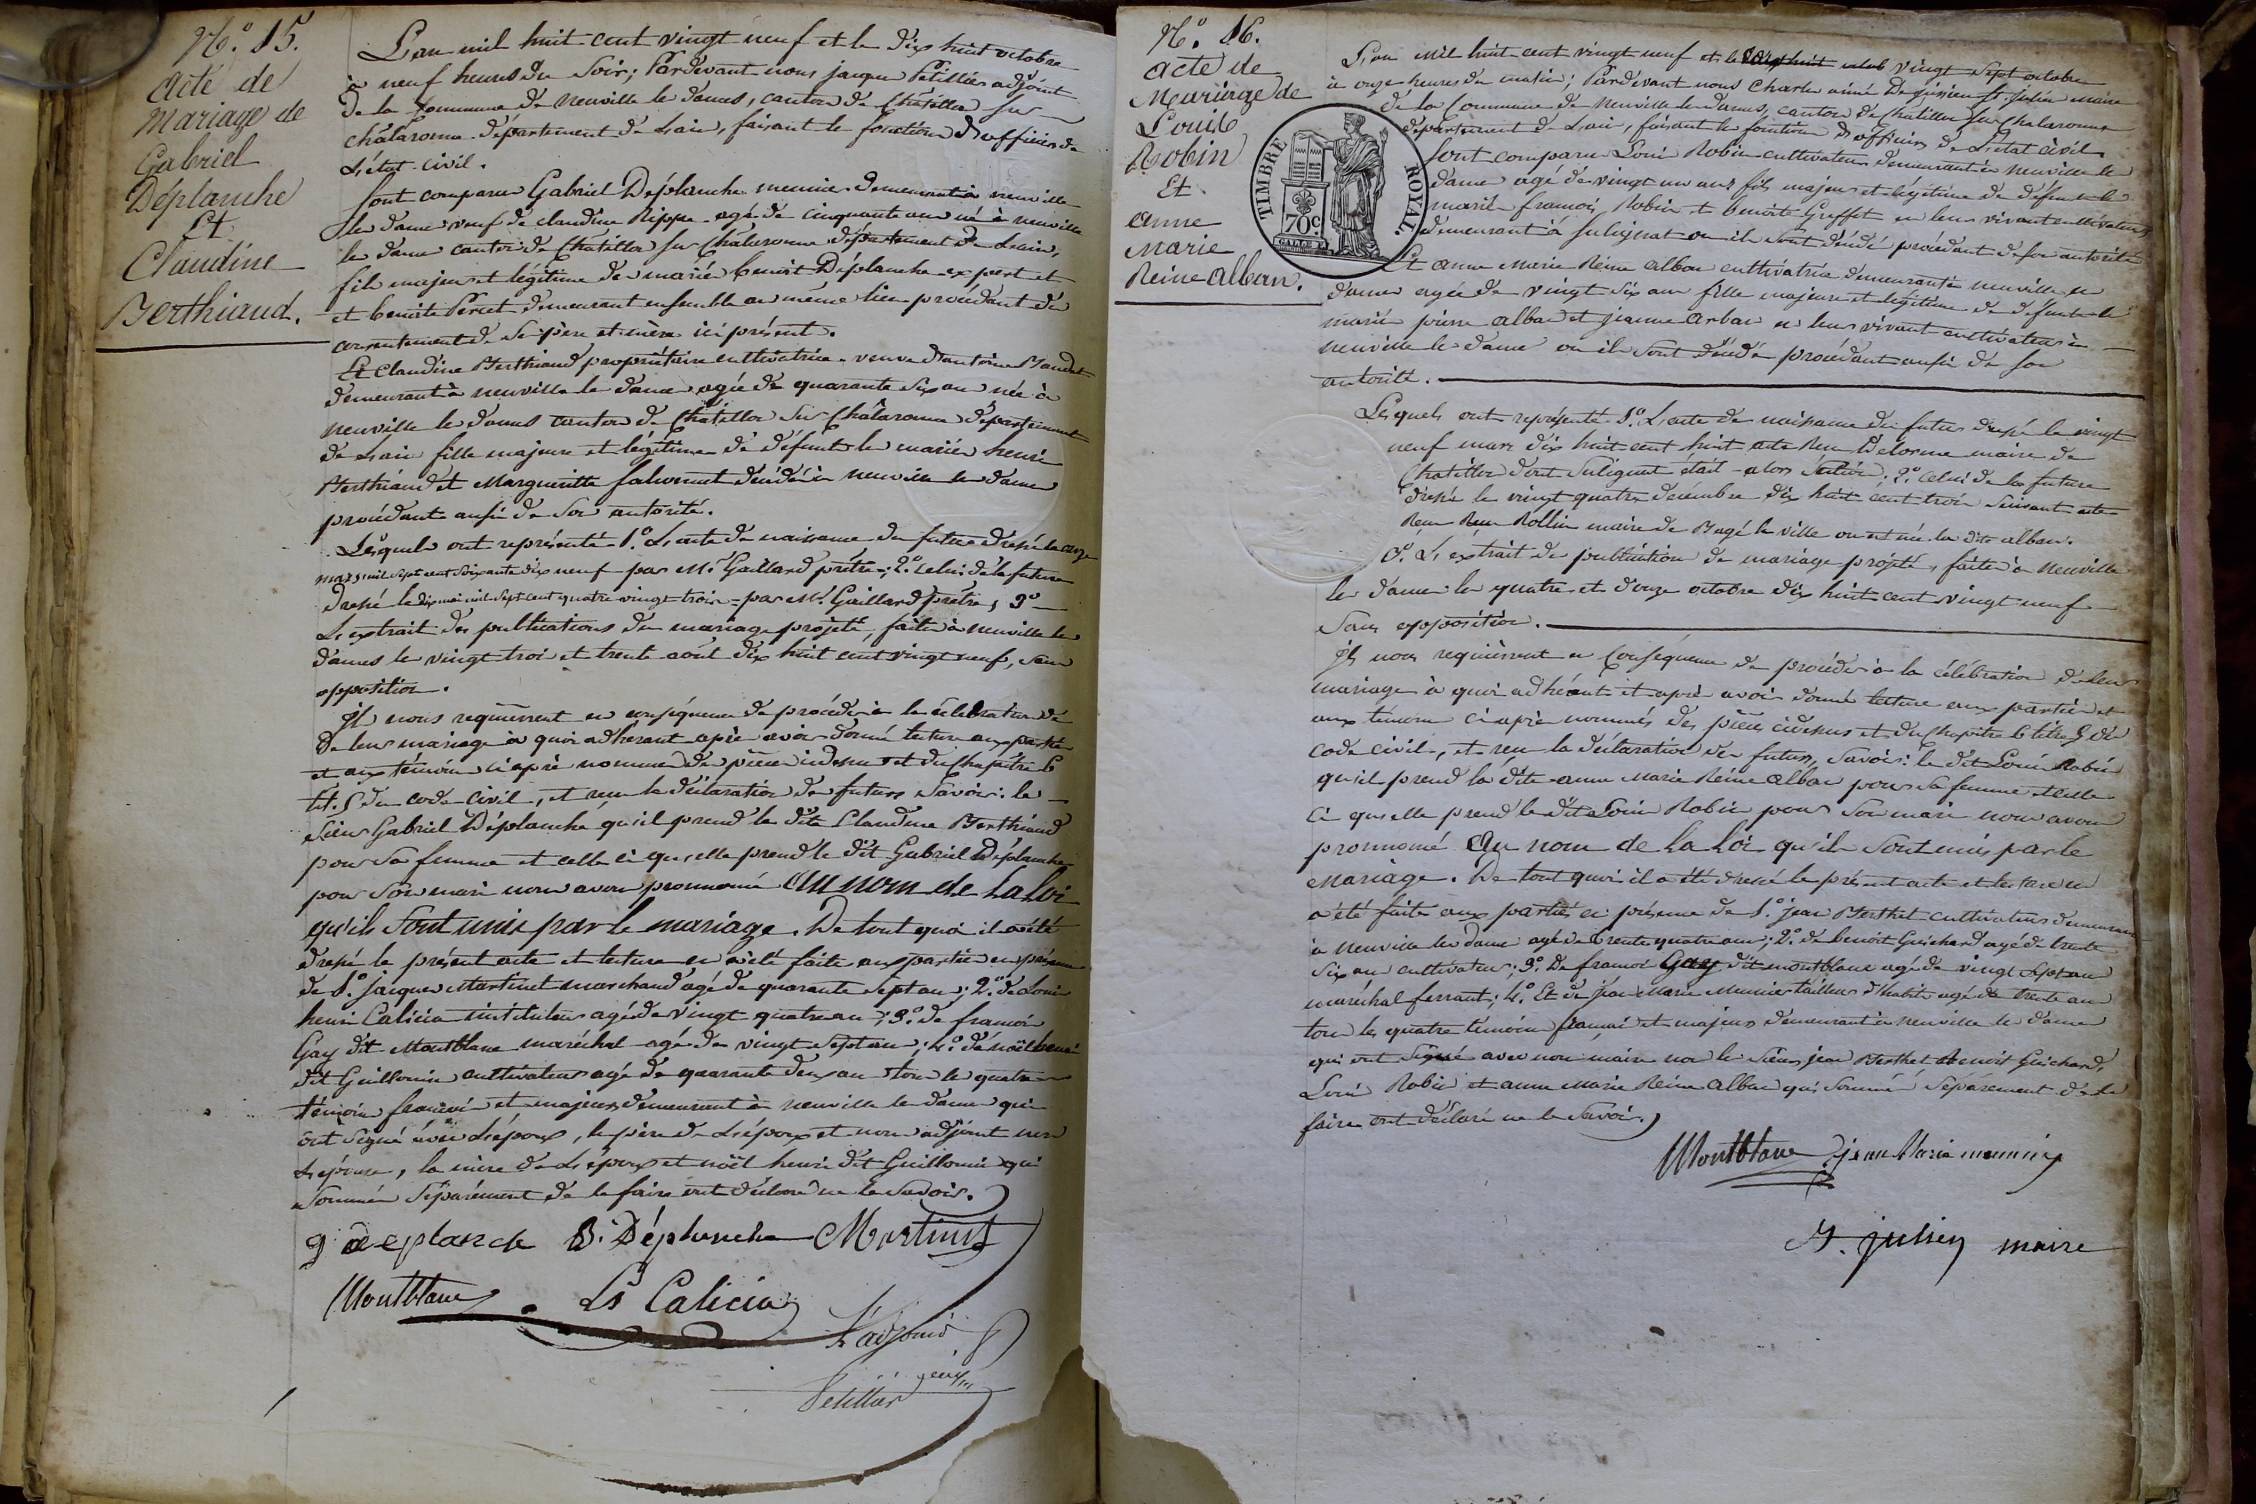 N.o 15.
acte de
Mariage de
Gabriel
Déplanche
Et
Claudine
Berthiaud.
L'an mil huit cent vingt neuf et le dix huit octobre
à neuf heures du Soir; Pardevant nous jacque Petillier adjoint
De la Commune de neuville le dames, canton de Châtillon sur
châlaronne département de L'ain, faisant le fonction d'officier de
L'état civil.
Sont comparu Gabriel Déplanche meunier demeurant à neuville
le dame veuf de claudine Rippe agé de cinquante ans né à neuville
le dame canton de Châtillon sur Chalaronne département de L'ain,
fils majeur et légitime de marié benoit Déplanche expert et
et benoite Percet demeurant ensemble au même lieu procédant du
consentement de Se père et mère ici présent.
Et Claudine Berthiaud propriétaire cultivatrice veuve d'antoine
demeurant à neuville le dame agée de quarante Six an née à
neuville le dames canton de Châtillon Sur Châlaronne département
de L'ain fille majeure et légitime de défunt le mariés henri
Berthiaud et Marguerite décédé à neuville le dame
procédante aussi de Son autorité.
Lesquels ont représenté 1.o L'acte de naissance du futur dressé le onze
mars mil sept cent soixante dix neuf par Mr Gaillard prêtre; 2.o celui de la future
dressé le dix mai mil sept cent quatre vingt trois par Mr. Gaillard prêtre, 3.o
L'extrait des publications du mariage projeté, faite à neuville le
dames le vingt troi et trente août dix huit cent vingt neuf, sans
opposition.
Il nous requièrent en conséquence de procéder à la célébration de
de leur mariage à quoi adhérant après avoir donné lecture aux parties
et aux témoins ci après nommés des pièces cidessus et du Chapitre 6
tit. 5 du code civil, et reçu la déclaration des futurs Savoir: le
Sieur Gabriel Déplanche qu'il prend la dite Claudine Berthiaud
pour Sa femme et celle ci qu'elle prend le dit Gabriel Déplanche
pour Son mari nous avons prononcé Au nom de La Loi
qu'ils Sont unis par le mariage. De tout quoi il a été
dressé le présent acte et lecture en a été faite aux parties en présence
de 1.o jacque Martinet marchand agé de quarante Sept an; 2.o de Louis
henri Calicia instituteur agé de vingt quatre an; 3.o de françois
Gay dit Montblanc maréchal agé de vingt Sept an; 4.o de noël henri
dit Guillomin cultivateur agé de quarante deux an tou le quatre
témoins français et majeurs demeurant à neuville le dame qui
ont Signé avec L'époux, le père de L'époux et nous adjoint non
L'épouse, la mère de L'époux et noël henri dit Guillomin qui
Sommés Séparément de le faire ont déclaré ne le Savoir.
g deplanche B. Déplanche Martinet
Montblanc Ls Calicia
L'adjoint
Petillier
N.o 16.
acte de
Mariage de
Louis
Robin
Et
anne
Marie
Reine alban.
TIMBRE ROYAL.
70c.
L'an mil huit cent vingt neuf et le vingt Sept octobre
à onze heures du matin; Pardevant nous Charle aimé St. julien maire
de la Commune de neuville le dames, canton de Châtillon sur Chalaronne
département de L'ain, faisant le fonction d'officier de L'état civil.
Sont comparu Loui Robin cultivateur demeurant à neuville le
dame agé de vingt un ans fils majeur et légitime de défunt le
marié françois Robin et benoite Greffet en leur vivant cultivateurs
demeurant à Suligniat ou il sont décédé procédant de son autorité
Et anne Marie Reine alban cultivatrice demeurant à neuville le
dames agée de vingt Six an fille majeure et légitime de défunt le
mariés pierre alban et jeanne arban en leur vivant cultivateurs à
neuville le dame ou il Sont décédé procédant aussi de Son
autorité.
Lesquels ont représenté 1.o L'acte de naissance du futur dressé le vingt
neuf mars dix huit cent huit acte Reçu Delorme maire de
Chatillon dont Suligniat était alors Section; 2.o celui de la future
dressé le vingt quatre décembre dix huit cent troi Suivant acte
Reçu Reçu Rollin maire de Bagé la ville ou est née la dite alban.
3.o L'extrait de publication de mariage projeté, faite à neuville
le dames le quatre et onze octobre dix huit cent vingt neuf
Sans opposition.
Il nous requièrent en Conséquence de procéder à la célébration de leur
mariage à quoi adhérant et après avoir donné lecture aux parties et
aux témoins ci après nommés des pièces cidessus et du Chapitre 6 titre 5 du
code civil, et reçu la déclaration des futurs, Savoir: le dit Loui Robin
qu'il prend la dite anne Marie Reine alban pour Sa femme et celle
ci qu'elle prend le dit Loui Robin pour Son mari nous avons
prononcé Au nom de La Loi qu'ils Sont unis par le
Mariage. De tout quoi il a été dressé le présent acte et lecture en
a été faite aux parties en présence de 1.o jean Berthet cultivateur demeurant
à neuville les dame agé de trente quatre an; 2.o de benoit Guichard agé de trente
Six an cultivateur; 3.o De françoi Gay dit montblanc agé de vingt Sept an
maréchal ferrant; 4.o Et de jean Marie Meunier tailleur d'habits agé de trente an
tou les quatre témoins françai et majeur demeurant à neuville le dame
qui ont Signé avec nou maire non le Sieur jean Berthet Benoit Guichard,
Loui Robin et anne Marie Reine alban qui Sommé Séparement de le
faire ont déclaré ne le Savoir.
Montblanc jean Marie meunier
St. julien maire